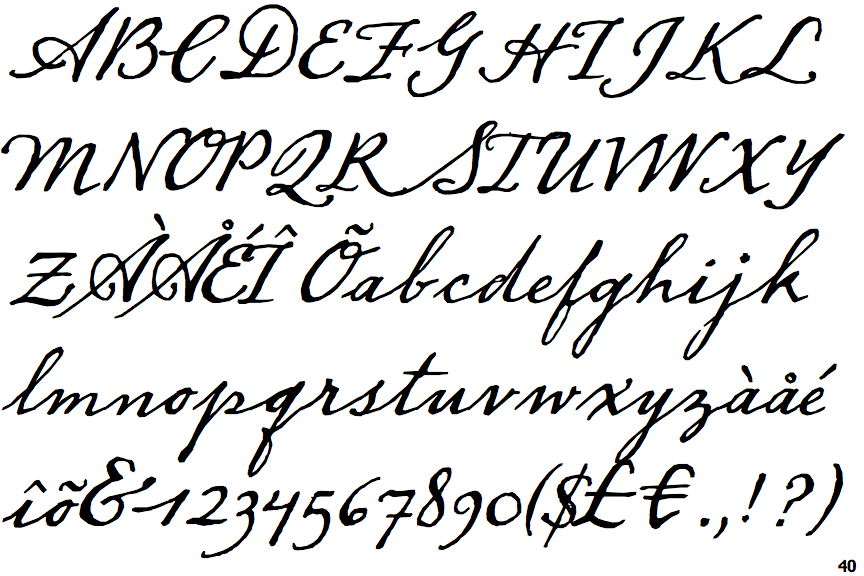 ABCDEFGHIJKL
MNOPQRSTUVWXY
ZÀÅÉÎÕabcdefghijk
lmnopqrstuvwxyzàåé
îõ&1234567890($£€.,!?)
40